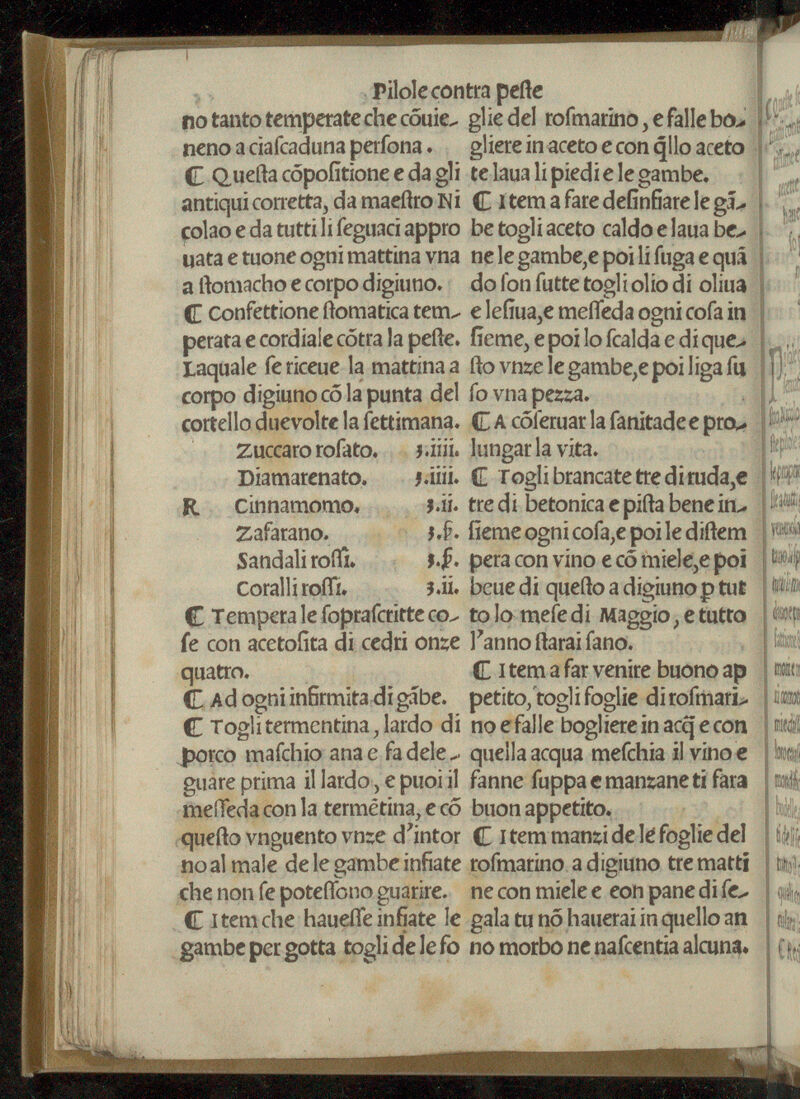 Pilole contra peſte
no tanto temperate che cõuie-
neno a ciaſcaduna perſona.
℃ Queſta cõpoſitione e da gli
antiqui corretta, da maeſtro Ni
colao e da tutti li ſeguaci appro
uata e tuone ogni mattina vna
a ſtomacho e corpo digiuno.
℃ Confettione ſtomatica tem-
perata e cordiale cõtra la peſte.
Laquale ſe riceue la mattina a
corpo digiuno cõ la punta del
cortello due volte la ſettimana.
Zuccaro roſato. ʒ.iiii.
Diamarenato. ʒ.iiii.
R Cinnamomo. ʒ.ii.
Zafarano. ʒ.ẜ.
Sandali roſſi. ʒ.ẜ.
Coralli roſſi. ʒ.ii.
℃ Tempera le ſopraſcritte co-
ſe con acetoſita di cedri onze
quatro.
℃ Ad ogni infirmita di gãbe.
℃ Togli termentina, lardo di
porco maſchio ana e fa dele-
guare prima il lardo, e puoi il
meſſeda con la termẽtina, e cõ
queſto vnguento vnze d'intor
no al male de le gambe infiate
che non ſe poteſſono guarire.
℃ Item che haueſſe infiate le
gambe per gotta togli de le fo
glie del roſmarino, e falle bo-
gliere in aceto e con q̃llo aceto
te laua li piedi e le gambe.
℃ Item a fare definfiare le gã-
be togli aceto caldo e laua be-
ne le gambe, e poi li ſuga e quã
do ſon ſutte togli olio di oliua
e leſiua, e meſſeda ogni coſa in
ſieme, e poi lo ſcalda e di que-
ſto vnze le gambe, e poi liga ſu
ſo vna pezza.
℃ A cõſeruar la ſanitade e pro-
lungar la vita.
℃ Togli brancate tre di ruda, e
tre di betonica e piſta bene in-
ſieme ogni coſa, e poi le diſtem
pera con vino e cõ miele, e poi
beue di queſto a digiuno p tut
to lo meſe di Maggio, e tutto
l'anno ſtarai ſano.
℃ Item a far venire buono ap
petito, togli foglie di roſmari-
no e falle bogliere in acq̃ e con
quella acqua meſchia il vino e
fanne ſuppa e manzane ti fara
buon appetito.
℃ Item manzi de le foglie del
roſmarino a digiuno tre matti
ne con miele e eon pane di ſe-
gala tu nõ hauerai in quello an
no morbo ne naſcentia alcuna.